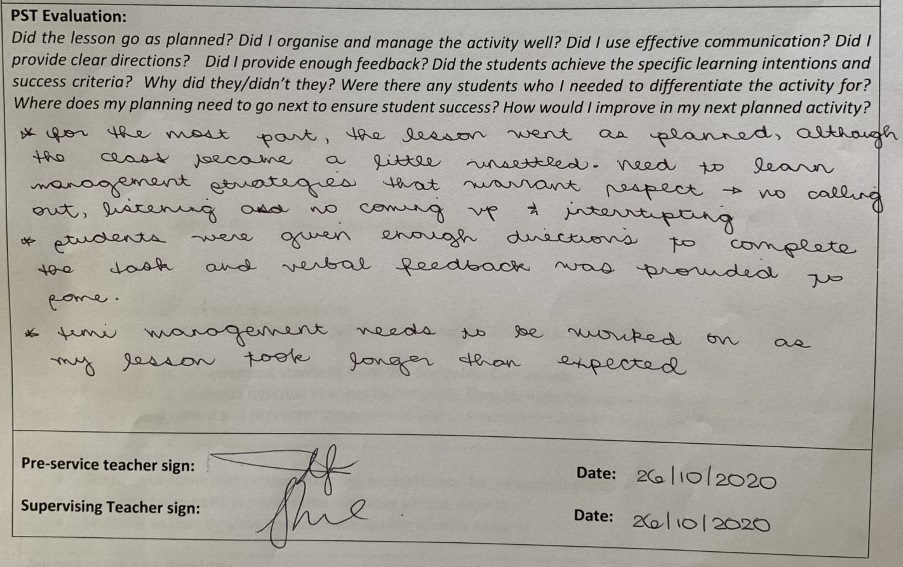 PST Evaluation:
Did the lesson go as planned? Did I organise and manage the activity well? Did I use effective communication? Did I
provide clear directions? Did I provide enough feedback? Did the students achieve the specific learning intentions and
success criteria? Why did they/didn't they? Were there any students who I needed to differentiate the activity for?
Where does my planning need to go next to ensure student success? How would I improve in my next planned activity?
* for the most part, the lesson went as planned, although
the class became a little unsettled. need to learn
management strategies that warrant respect → no calling
out, listening and no coming up & interrupting
* students were given enough directions to complete
the task and verbal feedback was provided to
some.
* time management needs to be worked on as
my lesson took longer than expected
Pre-service teacher sign:
Date: 26/10/2020
Supervising Teacher sign:
Date: 26/10/2020